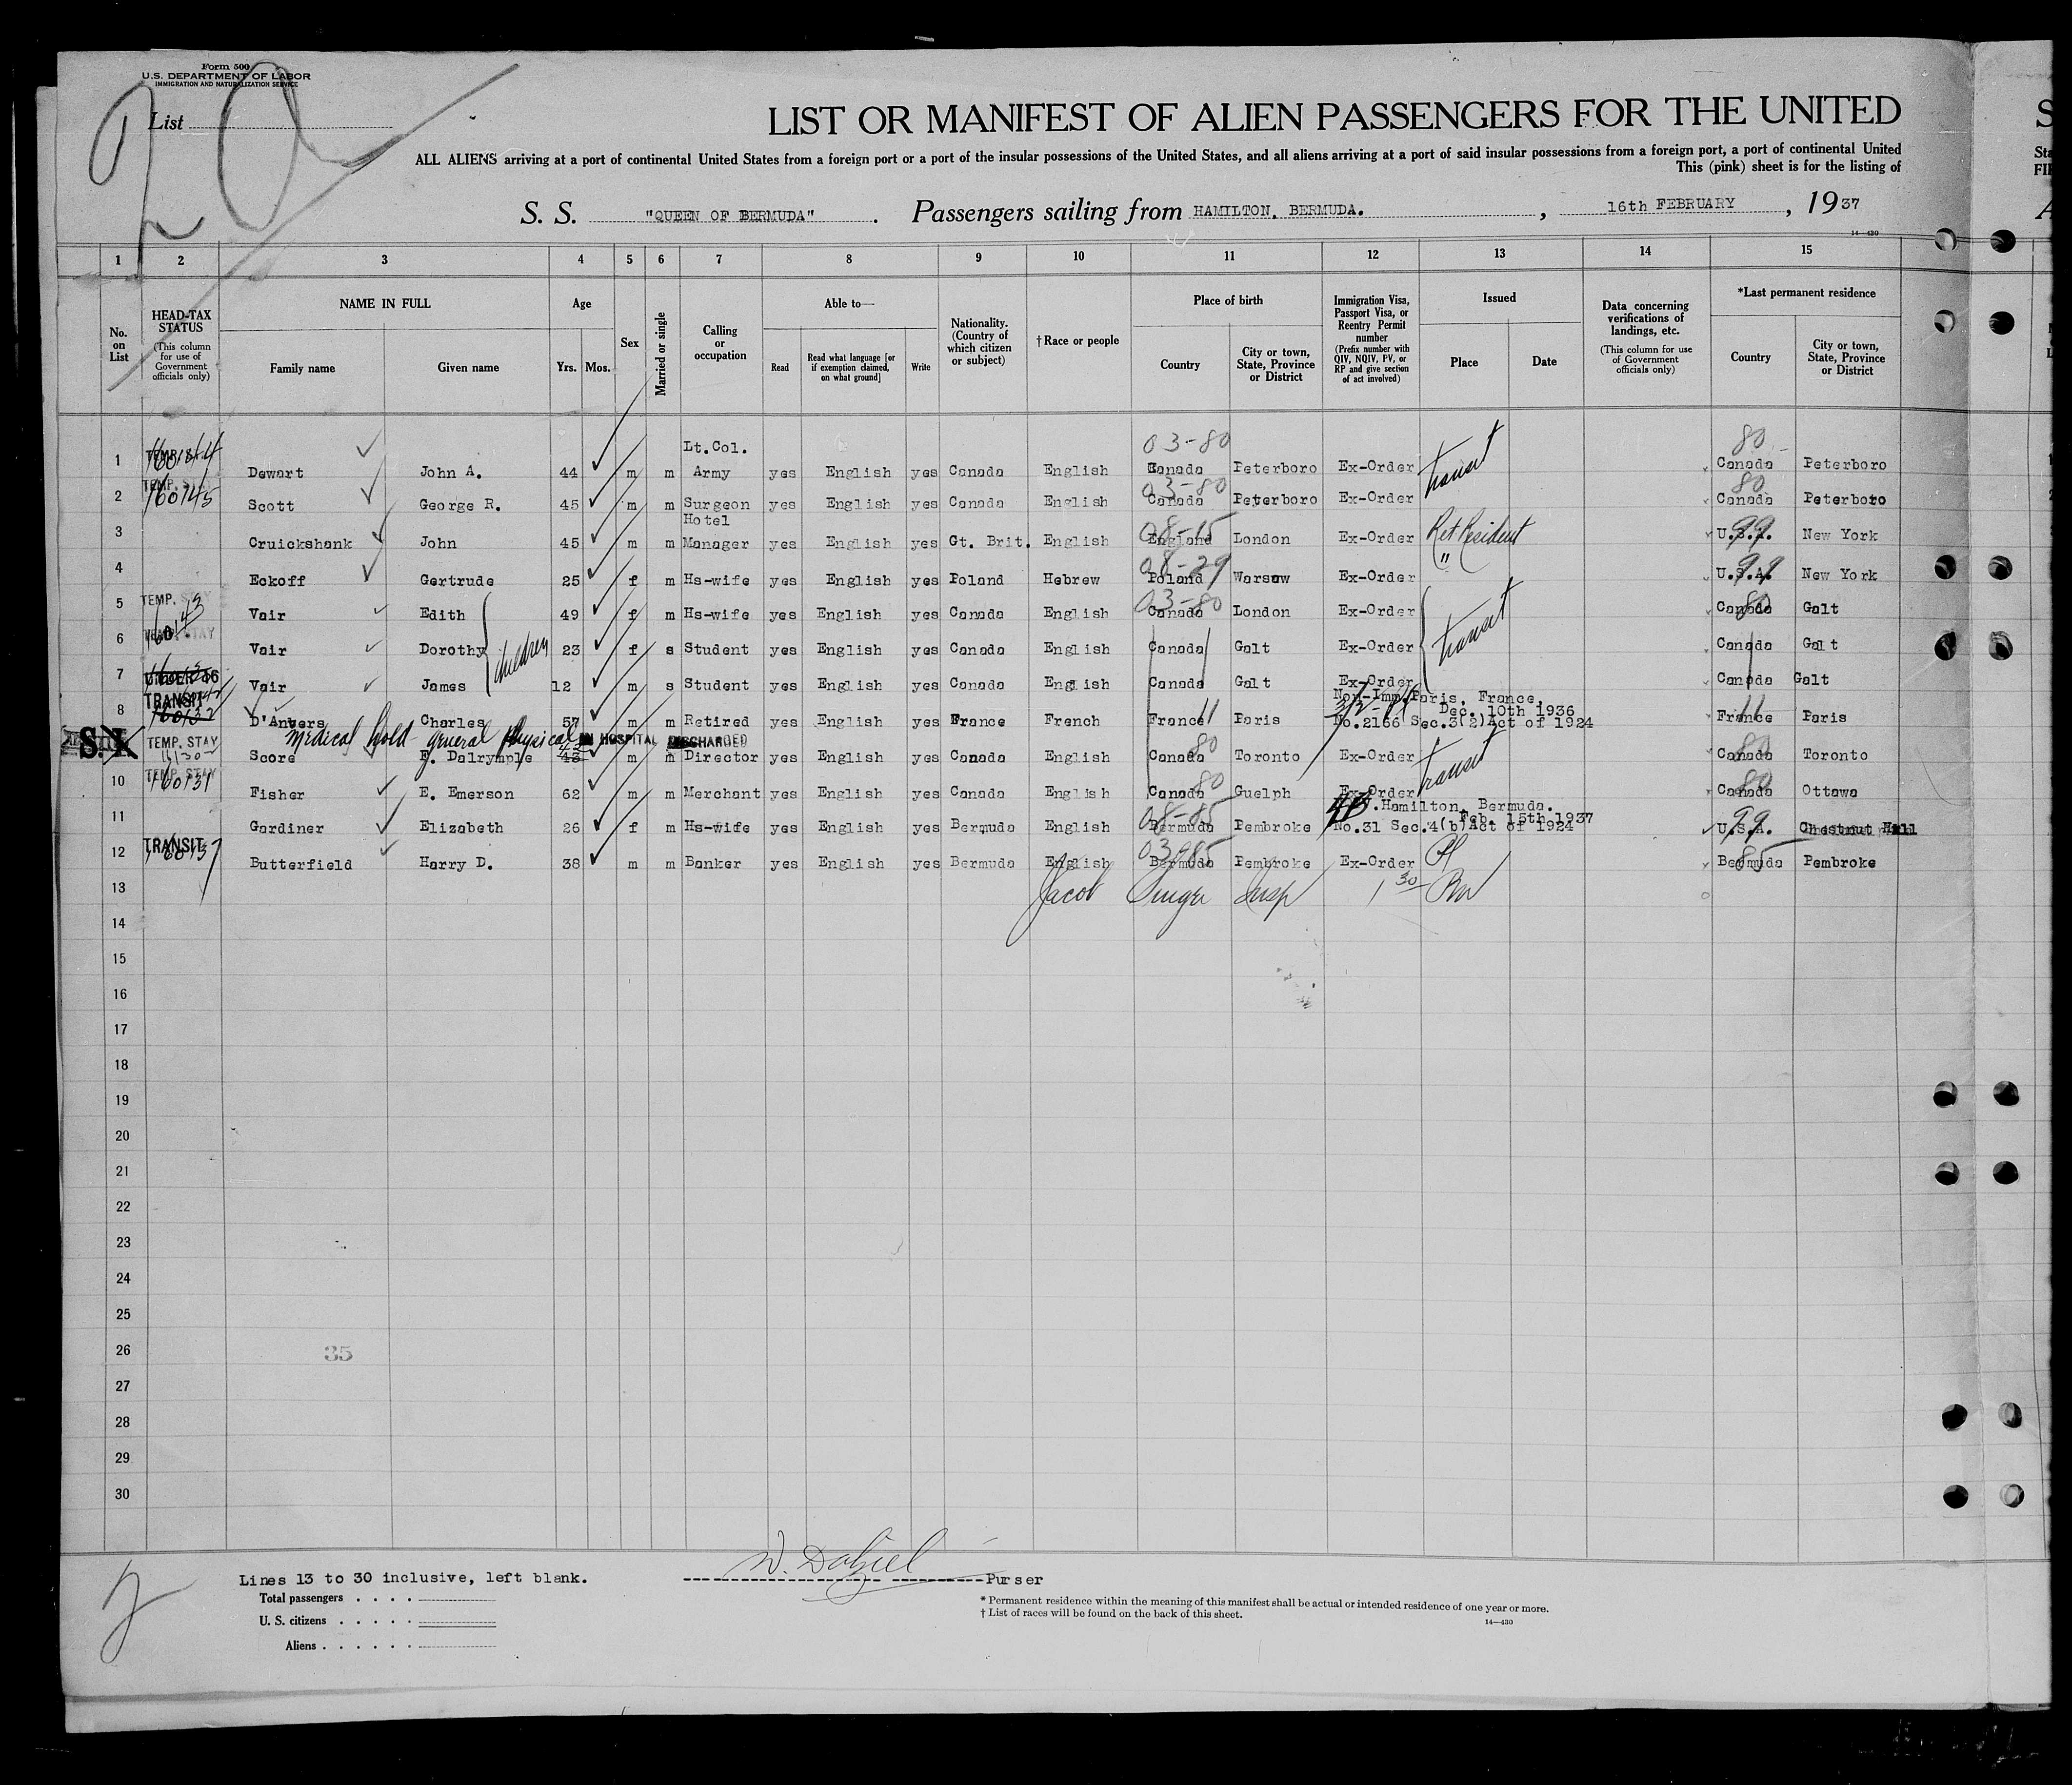 Form 500
U.S. DEPARTMENT OF LABOR
IMMIGRATION AND NATURALIZATION SERVICE
List
LIST OR MANIFEST OF ALIEN PASSENGERS FOR THE UNITED
ALL ALIENS arriving at a port of continental United States from a foreign port or a port of the insular possessions of the United States, and all aliens arriving at a port of said insular possessions from a foreign port, a port of continental United
This (pink) sheet is for the listing of
S. S. "QUEEN OF BERMUDA". Passengers sailing from HAMILTON, BERMUDA. , 16th FEBRUARY , 1937
14-430
1 2 3 4 5 6 7 8 9 10 11 12 13 14 15
No. on List
HEAD-TAX STATUS (This column for use of Government officials only)
NAME IN FULL
Family name Given name
Age
Yrs. Mos.
Sex
Married or single
Calling or occupation
Able to—
Read Read what language [or if exemption claimed, on what ground] Write
Nationality. (Country of which citizen or subject)
†Race or people
Place of birth
Country City or town, State, Province or District
Immigration Visa, Passport Visa, or Reentry Permit number (Prefix number with QIV, NQIV, PV, or RP and give section of act involved)
Issued
Place Date
Data concerning verifications of landings, etc. (This column for use of Government officials only)
*Last permanent residence
Country City or town, State, Province or District
03-80 80
1 TEMP. STAY 160144 Dewart John A. 44 m m Lt.Col. Army yes English yes Canada English Canada Peterboro Ex-Order transit Canada Peterboro
03-80 80
2 TEMP. STAY 160145 Scott George R. 45 m m Surgeon yes English yes Canada English Canada Peterboro Ex-Order Canada Peterboro
08-15 99
3 Cruickshank John 45 m m Hotel Manager yes English yes Gt. Brit. English England London Ex-Order Ret Resident U.S.A. New York
08-29 99
4 Eckoff Gertrude 25 f m Hs-wife yes English yes Poland Hebrew Poland Warsaw Ex-Order " U.S.A. New York
03-80 80
5 TEMP. STAY Vair Edith 49 f m Hs-wife yes English yes Canada English Canada London Ex-Order Canada Galt
6 STAY Vair Dorothy children 23 f s Student yes English yes Canada English Canada Galt Ex-Order transit Canada Galt
7 UNDER 16 Vair James 12 m s Student yes English yes Canada English Canada Galt Ex-Order Canada Galt
Non-Imm. Paris, France,
Dec. 10th 1936
8 TRANSIT D'Anvers Charles 57 m m Retired yes English yes France French France 11 Paris No.2166 Sec.3(2)Act of 1924 France 11 Paris
Medical hold general physical IN HOSPITAL DISCHARGED
S.I. TEMP. STAY Score F. Dalrymple 43 m m Director yes English yes Canada English Canada 80 Toronto Ex-Order transit Canada 80 Toronto
10 TEMP. STAY 160131 Fisher E. Emerson 62 m m Merchant yes English yes Canada English Canada 80 Guelph Ex-Order Canada 80 Ottawa
Hamilton, Bermuda.
Feb. 15th 1937
11 Gardiner Elizabeth 26 f m Hs-wife yes English yes Bermuda English 08-85 Bermuda Pembroke No.31 Sec.4(b)Act of 1924 U.S.A. 99 Chestnut Hill
12 TRANSIT 160137 Butterfield Harry D. 38 m m Banker yes English yes Bermuda English 03-85 Bermuda Pembroke Ex-Order Bermuda 85 Pembroke
13 Jacob Singer Insp 1 30 Pm
14
15
16
17
18
19
20
21
22
23
24
25
26
35
27
28
29
30
Lines 13 to 30 inclusive, left blank.
W. Dalziel Purser
Total passengers . . . .
U. S. citizens . . . . .
Aliens . . . . . .
* Permanent residence within the meaning of this manifest shall be actual or intended residence of one year or more.
† List of races will be found on the back of this sheet.
14-430